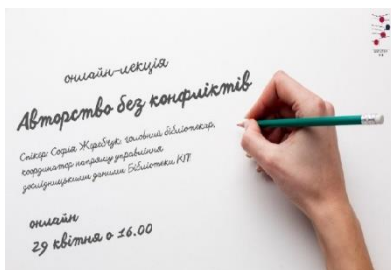 онлайн-лекція
Авторство без конфліктів
Спікер: Софія Жеребчук, головний бібліотекар,
координатор напряму управління
дослідницькими даними Бібліотеки КПІ
онлайн
29 квітня о 16.00